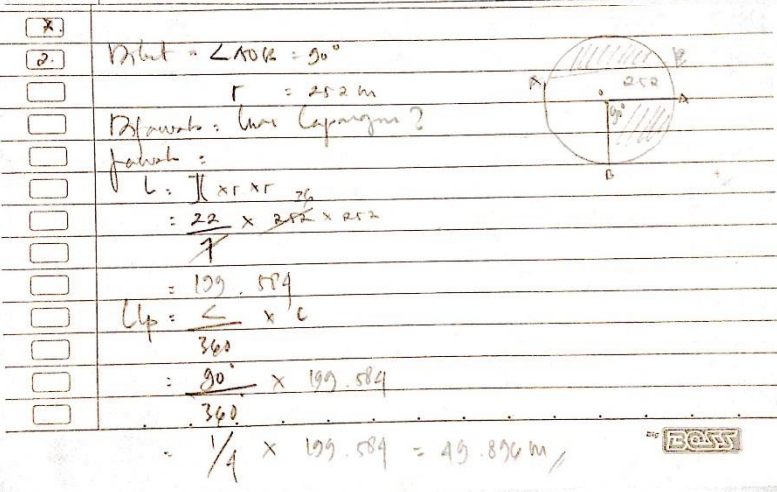 x.
2. Diket = ∠AOB = 90°
r = 252 m
= Luas Lapangan ?
Jawab :
L = π x r x r
= 22/7 x 252 36 x 252
= 199.584
Llp = ∠/360 x L
= 90°/360 x 199.584
= 1/4 x 199.584 = 49.896 m //
A
B
o
252
A
90°
B
BOSS